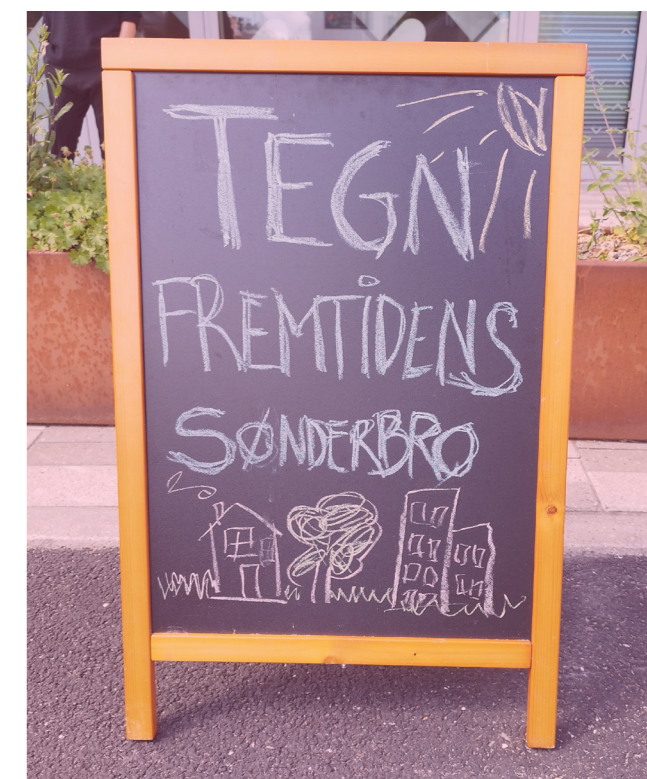 TEGN
FREMTiDENS
SØNDERBRO